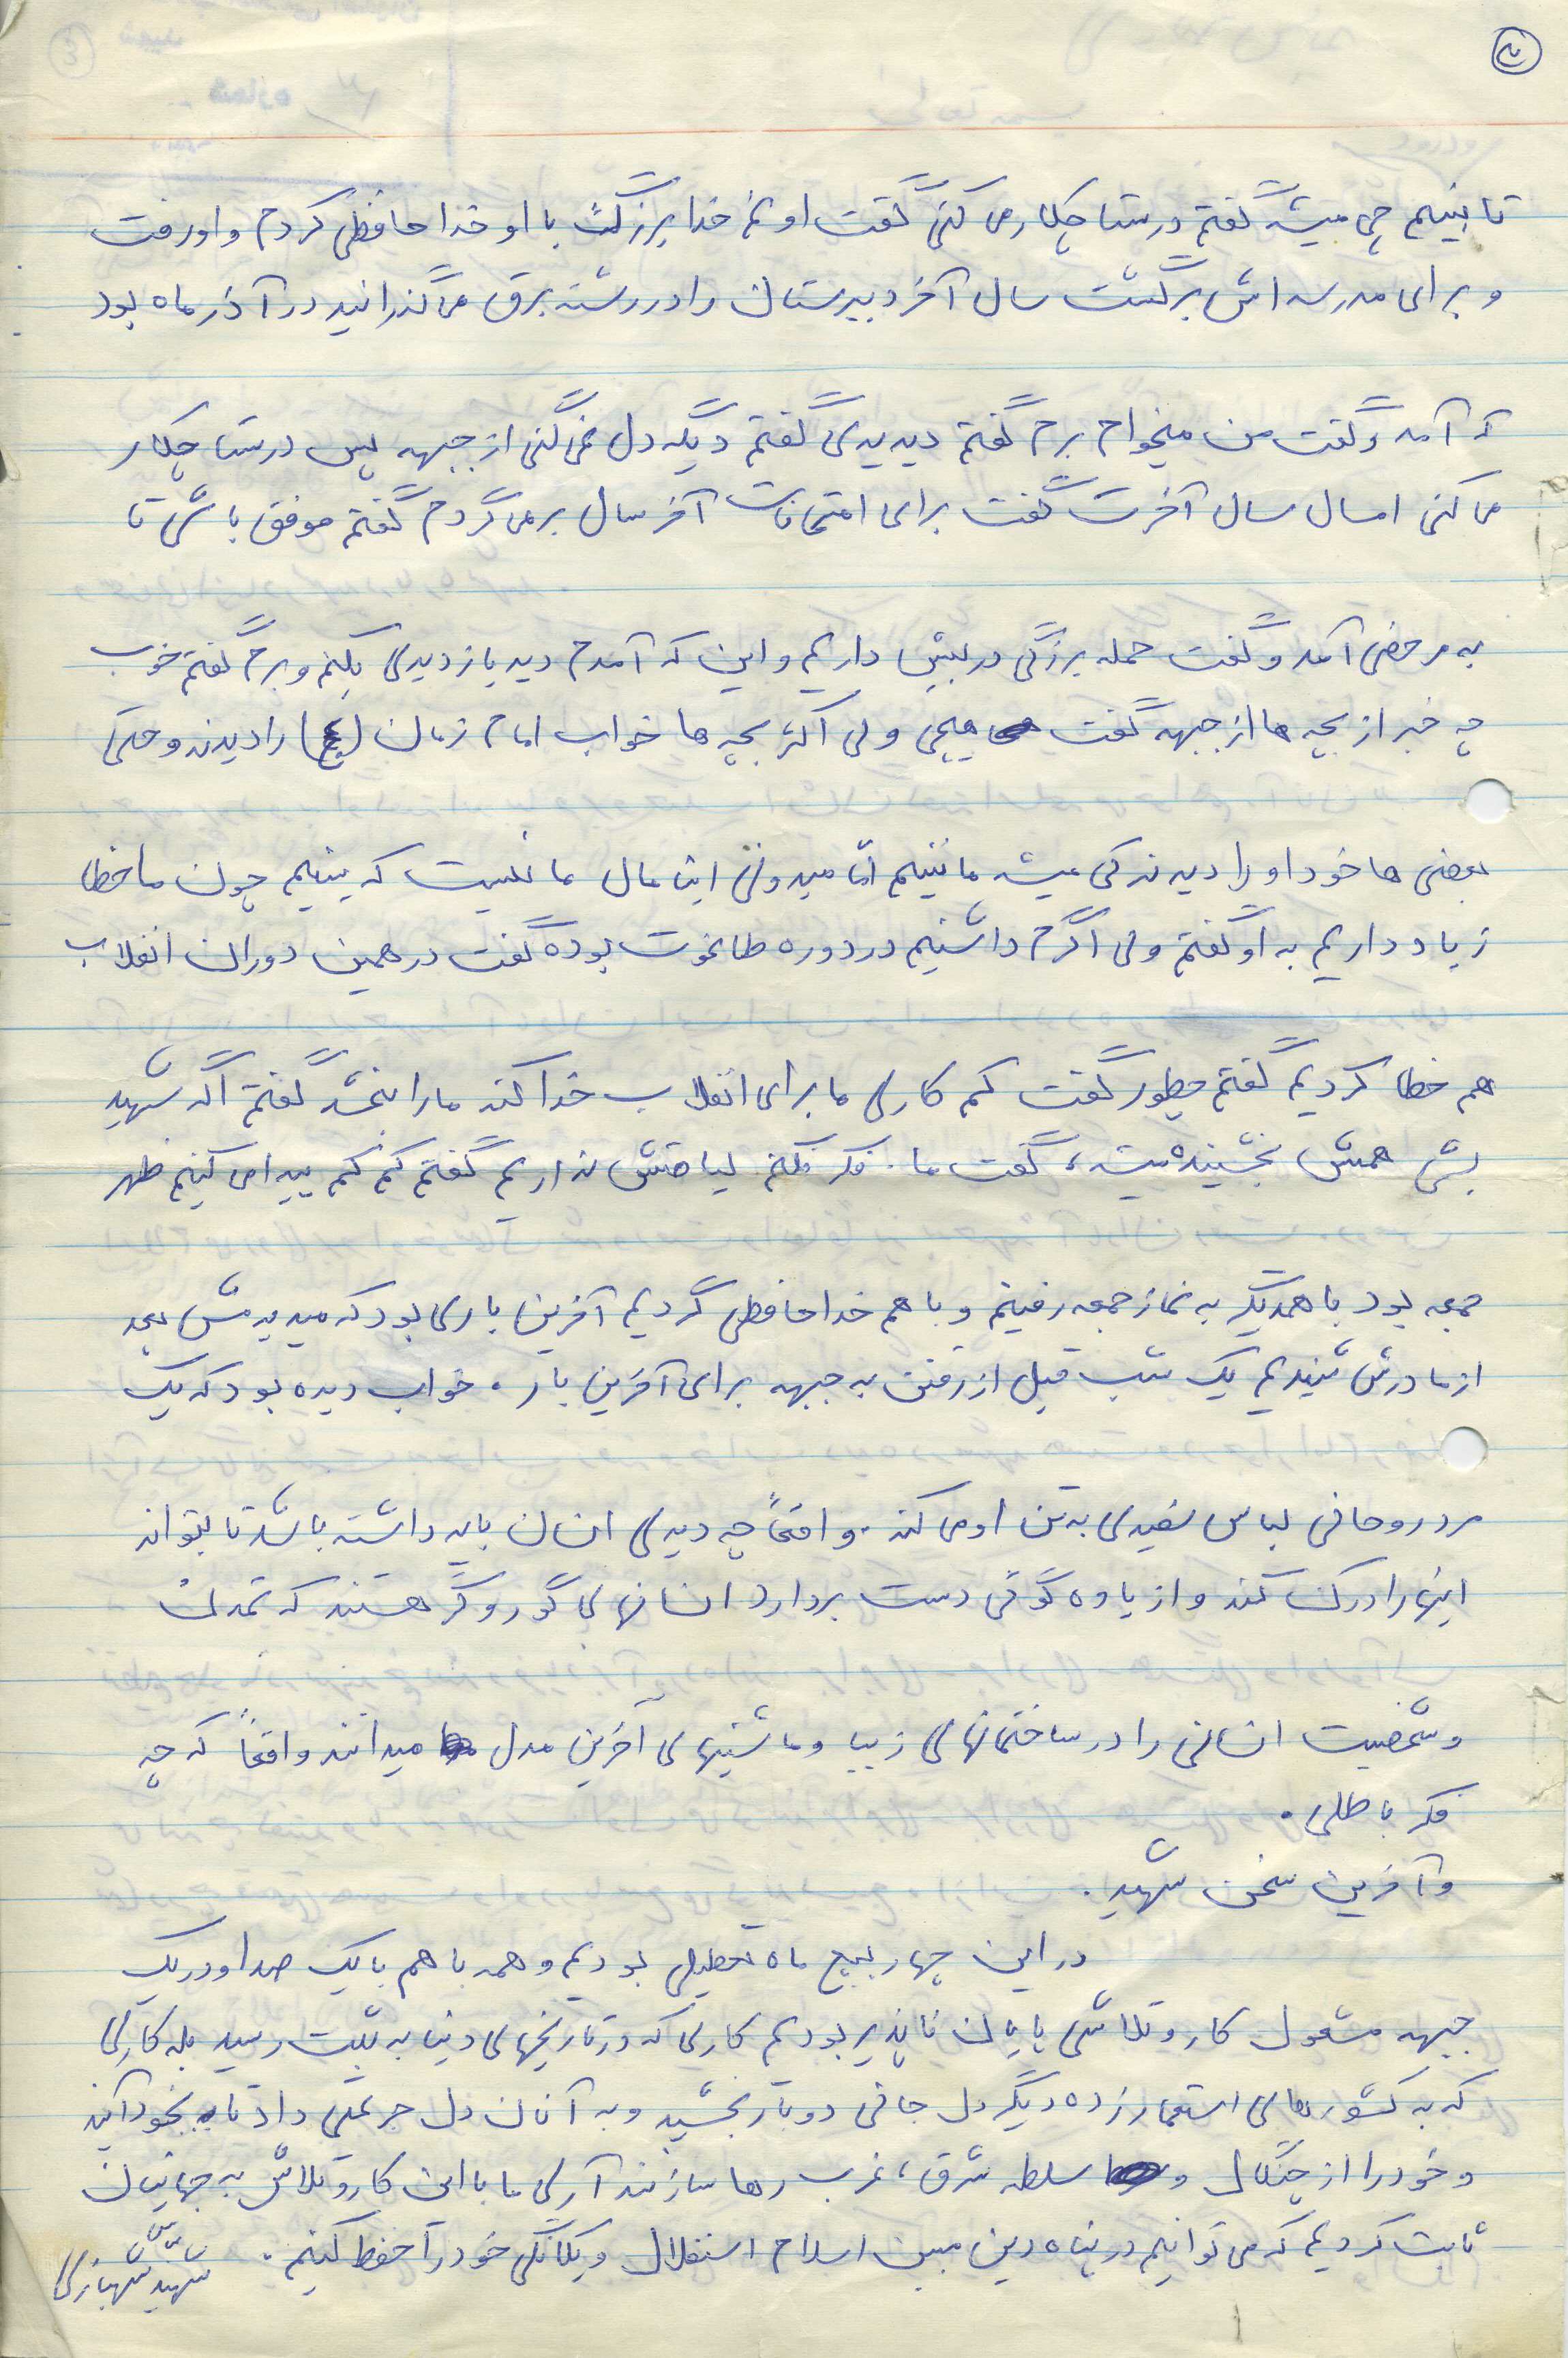 ۲
تا ببینیم چی میشه گفتم درستا چکار می کنی گفت اونم خدا بزرگت با او خدا حافظی کردم و او رفت
و برای مدرسه اش برگشت سال آخر دبیرستان را در رشته برق می گذرانید در آذر ماه بود
که آمد و گفت من میخوام برم گفتم دیدیدی گفتم دیگه دل نمی کنی از جبهه پس درستا چکار
می کنی امسال سال آخرت گفت برای امتحانات آخر سال بر می گردم گفتم موفق باشی تا
به مرخصی آمد و گفت حمله بزرگی در پیش داریم و این که آمدم دید بازدیدی بکنم و برم گفتم خوب
چه خبر از بچه ها از جبهه گفت هیچی ولی اکثر بچه ها خواب امام زمان (عج) را دیدند و حتی
بعضی ها خود او را دیدند کی میشه ما ببینیم امّا میدونی اینا مال ما نیست که ببینیم چون ما خطا
زیاد داریم به او گفتم ولی اگرم داشتیم در دوره طاغوت بوده گفت در همین دوران انقلاب
هم خطا کردیم گفتم چطور گفت کم کاری ما برای انقلاب خدا کند ما را ببخشد گفتم اگه شهید
بشی همش بخشیده میشه، گفت ما. فکر نکنم لیاقتش نداریم گفتم کم کم پیدا می کنیم ظهر
جمعه بود با همدیگر به نماز جمعه رفتیم و با هم خداحافظی کردیم آخرین باری بود که میدیدمش بعد
از مادرش شنیدیم یک شب قبل از رفتن به جبهه برای آخرین بار، خواب دیده بود که یک
مرد روحانی لباس سفیدی به تن او می کند. واقعاً چه دیدی انسان باید داشته باشد تا بتواند
اینها را درک کند و از یاوه گوئی دست بردارد انسانهای کور و کر هستند که تمدن
و شخصیت انسانی را در ساختمانهای زیبا و ماشینهای آخرین مدل میدانند واقعاً که چه
فکر باطلی.
و آخرین سخن شهید.
در این چهار پنج ماه تعطیلی بودیم و همه با هم با یک صدا و در یک
جبهه مشغول کار و تلاشی پایان ناپذیر بودیم کاری که در تاریخهای دنیا به ثبت رسید بله کاری
که به کشورهای استعمار زده دیگر دل جانی دوباره بخشید و به آنان دل جرعتی داد تا بخود آیند
و خود را از چنگال و سلطه شرق، غرب رها سازند آری ما با این کار و تلاش به جهانیان
ثابت کردیم که می توانیم در پناه دین مبین اسلام استقلال و یگانگی خود را حفظ کنیم.
شهید شهبازی